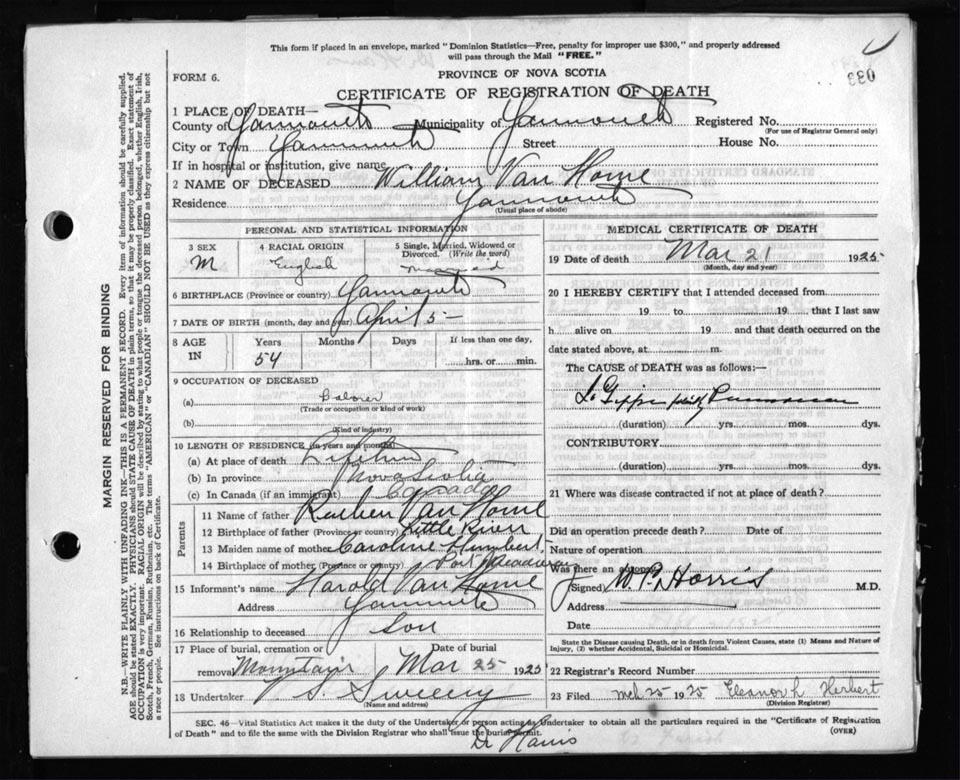 This form if placed in an envelope, marked "Dominion Statistics—Free, penalty for improper use $300," and properly addressed
will pass through the Mail "FREE."
FORM 6.
PROVINCE OF NOVA SCOTIA
CERTIFICATE OF REGISTRATION OF DEATH
1 PLACE OF DEATH—
County of Yarmouth Municipality of Yarmouth Registered No.
(For use of Registrar General only)
City or Town Yarmouth Street House No.
If in hospital or institution, give name
2 NAME OF DECEASED William Van Horne
Residence Yarmouth
(Usual place of abode)
PERSONAL AND STATISTICAL INFORMATION
3 SEX 4 RACIAL ORIGIN 5 Single, Married, Widowed or
Divorced. (Write the word)
M English married
6 BIRTHPLACE (Province or country) Yarmouth
7 DATE OF BIRTH (month, day and year) April 5
8 AGE IN Years Months Days If less than one day,
54 hrs. or min.
9 OCCUPATION OF DECEASED
(a)
(Trade or occupation or kind of work)
(b)
(Kind of industry)
10 LENGTH OF RESIDENCE (in years and months)
(a) At place of death Lifetime
(b) In province Nova Scotia
(c) In Canada (if an immigrant) Canada
Parents
11 Name of father Reuben Van Horne
12 Birthplace of father (Province or country) Little River
13 Maiden name of mother Caroline
14 Birthplace of mother (Province or country) Port
15 Informant's name Harold Van Horne
Address Yarmouth
16 Relationship to deceased Son
17 Place of burial, cremation or
removal Mountain
Date of burial
Mar 25 1925
18 Undertaker V. S. Sweeny
(Name and address)
MEDICAL CERTIFICATE OF DEATH
19 Date of death Mar 21 1925
(Month, day and year)
20 I HEREBY CERTIFY that I attended deceased from
19 to 19 that I last saw
h alive on 19 and that death occurred on the
date stated above, at m.
The CAUSE of DEATH was as follows:—
La Grippe
(duration) yrs. mos. dys.
CONTRIBUTORY
(duration) yrs. mos. dys.
21 Where was disease contracted if not at place of death?
Did an operation precede death? Date of
Nature of operation
Was there an autopsy
(Signed) W. P. Harris M.D.
Address
Date
State the Disease causing Death, or in death from Violent Causes, state (1) Means and Nature of
Injury, (2) whether Accidental, Suicidal or Homicidal.
22 Registrar's Record Number
23 Filed Mch 25 1925 Eleanor L Herbert
(Division Registrar)
SEC. 46—Vital Statistics Act makes it the duty of the Undertaker or person acting as Undertaker to obtain all the particulars required in the "Certificate of Registration
of Death" and to file the same with the Division Registrar who shall issue the burial permit.
(OVER)
Dr Harris
MARGIN RESERVED FOR BINDING
N.B.—WRITE PLAINLY WITH UNFADING INK—THIS IS A PERMANENT RECORD. Every item of information should be carefully supplied.
AGE should be stated EXACTLY. PHYSICIANS should STATE CAUSE OF DEATH in plain terms, so that it may be properly classified. Exact statement of
OCCUPATION is very important. RACIAL ORIGIN will be described by stating to what people or tongue the deceased person belonged, whether English, Irish,
Scotch, French, German, Russian, Ruthenian, etc. The terms "AMERICAN" or "CANADIAN" SHOULD NOT BE USED as they express citizenship but not
a race or people. See instructions on back of Certificate.